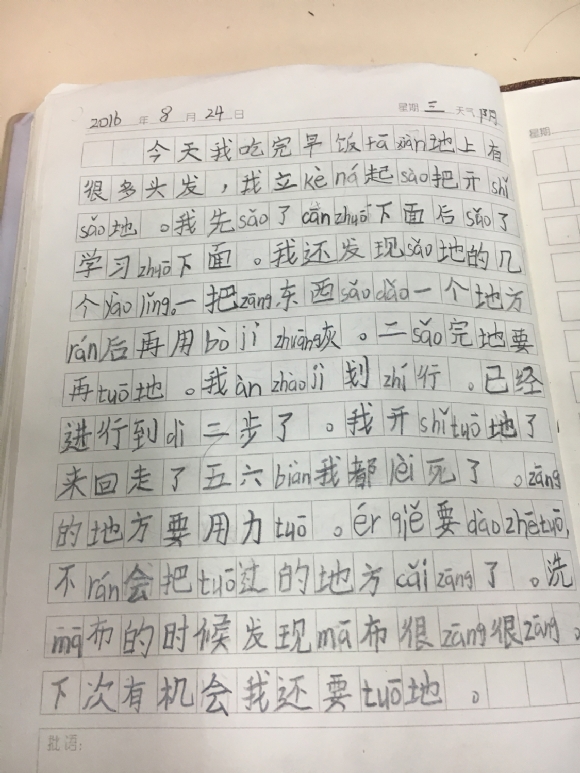 2016 年 8 月 24 日 星期 三 天气 阴
今天我吃完早饭fā xiàn地上有
很多头发，我立kè ná起sào把开shǐ
sǎo地。我先sǎo了cān zhuō下面后sǎo了
学习zhuō下面。我还发现sǎo地的几
个yào lǐng。一把zāng东西sǎo dào一个地方
rán后再用bò jī zhuāng灰。二sǎo完地要
再tuō地。我àn zhào jì划zhí行。已经
进行到dì二步了。我开shǐ tuō地了
来回走了五六biàn我都lèi死了。zāng
的地方要用力tuō。ér qiě要dào zhe tuō，
不rán会把tuō过的地方cǎi zāng了。洗
mā布的时候发现mā布很zāng很zāng。
下次有机会我还要tuō地。
批语:
星期